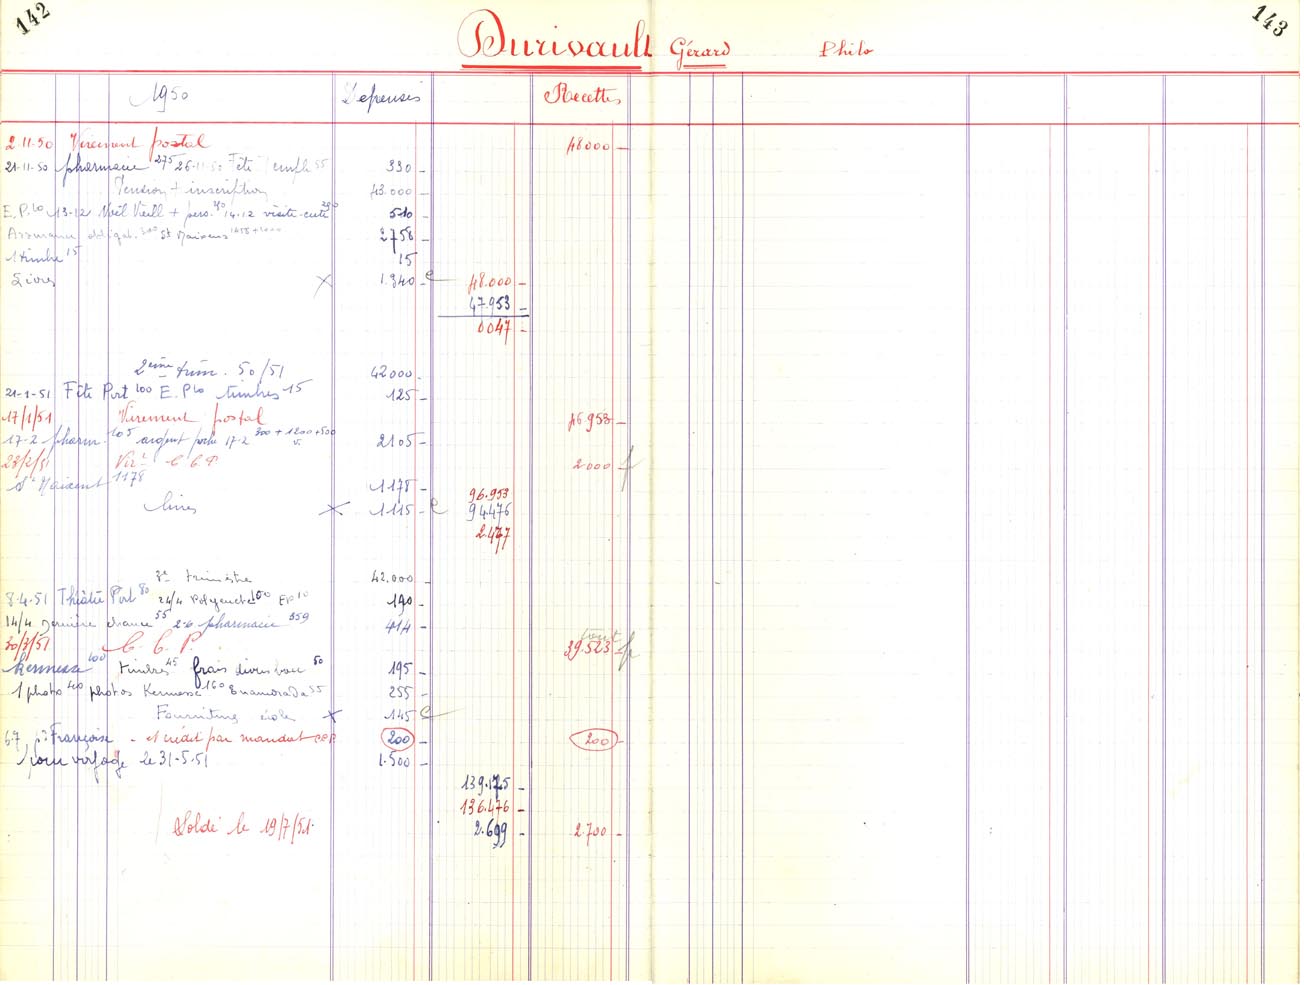 142
143
Durivault Gérard Philo
1950 Dépenses Recettes
2.11.50 Virement postal 48000 -
21-11-50 pharmacie 275 26-11-50 Fête Temple 55 330 -
Pension + inscription 43.000 -
E.P. 10 13-12 Noël Vieill + pers. 14-12 visite 510 -
Assurance obligat. 300 St Maixent 1458 + 1000 2758 -
1 timbre 15 15
Livres x 1.340 - e 48.000 -
47.953 -
0047 -
2ème trim. 50/51 42000 -
21-1-51 Fête Port 100 E.P 10 timbres 15 125 -
17/1/51 Virement postal 46.953 -
17-2 pharm. 105 argent poche 17-2 300 + 1200 + 500 2105 -
28/2/51 Virt C.C.P. 2000
St Maixent 1178 1178 - 96.953
livres x 1115 - e 94.476
2.477
3e trimestre 42.000 -
8.4.51 Théâtre Port 80 24/4 Polyeucte 100 EP 10 190 -
14/4 Dernière chance 55 2-6 pharmacie 359 414 -
30/3/51 C.C.P. tout 39.523 -
Kermesse 100 timbres 45 frais divers bac 50 195 -
1 photo 40 photos Kermesse 160 Enamorada 55 255 -
Fournitures école x 145 e
6.7 pr Françoise - et crédit par mandat CCP 200 - 200 -
pour voyage le 31-5-51 1.500 -
139.175 -
136.476 -
Soldé le 19/7/51. 2.699 - 2.700 -